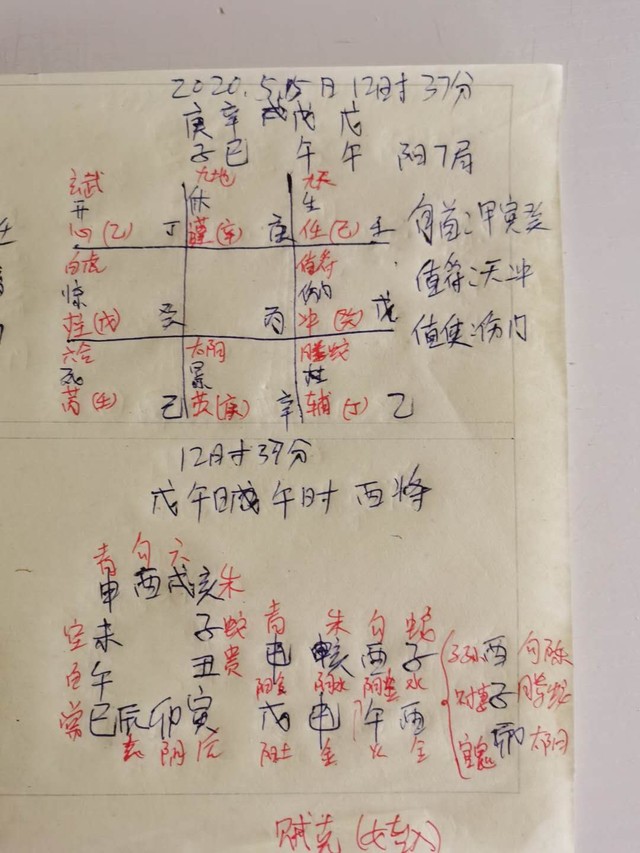 2020.5.15日12时37分
庚辛戊戊
子巳午午 阳7局
玄武 九地 九天
开 休 生
心(乙) 丁 (辛) 庚 任(己) 壬
旬首:甲寅癸
白虎 值符
惊 伤门
柱(戊) 癸 丙 冲(癸) 戊
值符:天冲
值使:伤门
六合 太阴 腾蛇
死 景 杜
芮(壬) 己 英(庚) 辛 辅(丁) 乙
12时39分
戊午日 午时 酉将
青 勾 六
申 酉 戌 亥 朱
空 未 子 蛇
午 丑 贵
常 巳 辰 卯 寅
玄 阴 后
青 朱 勾 蛇
申 亥 酉 子
阳金 水 金 水
戊 申 午 酉
阳土 金 火 金
酉 勾
子 腾蛇
官鬼 卯 太阴
贼克